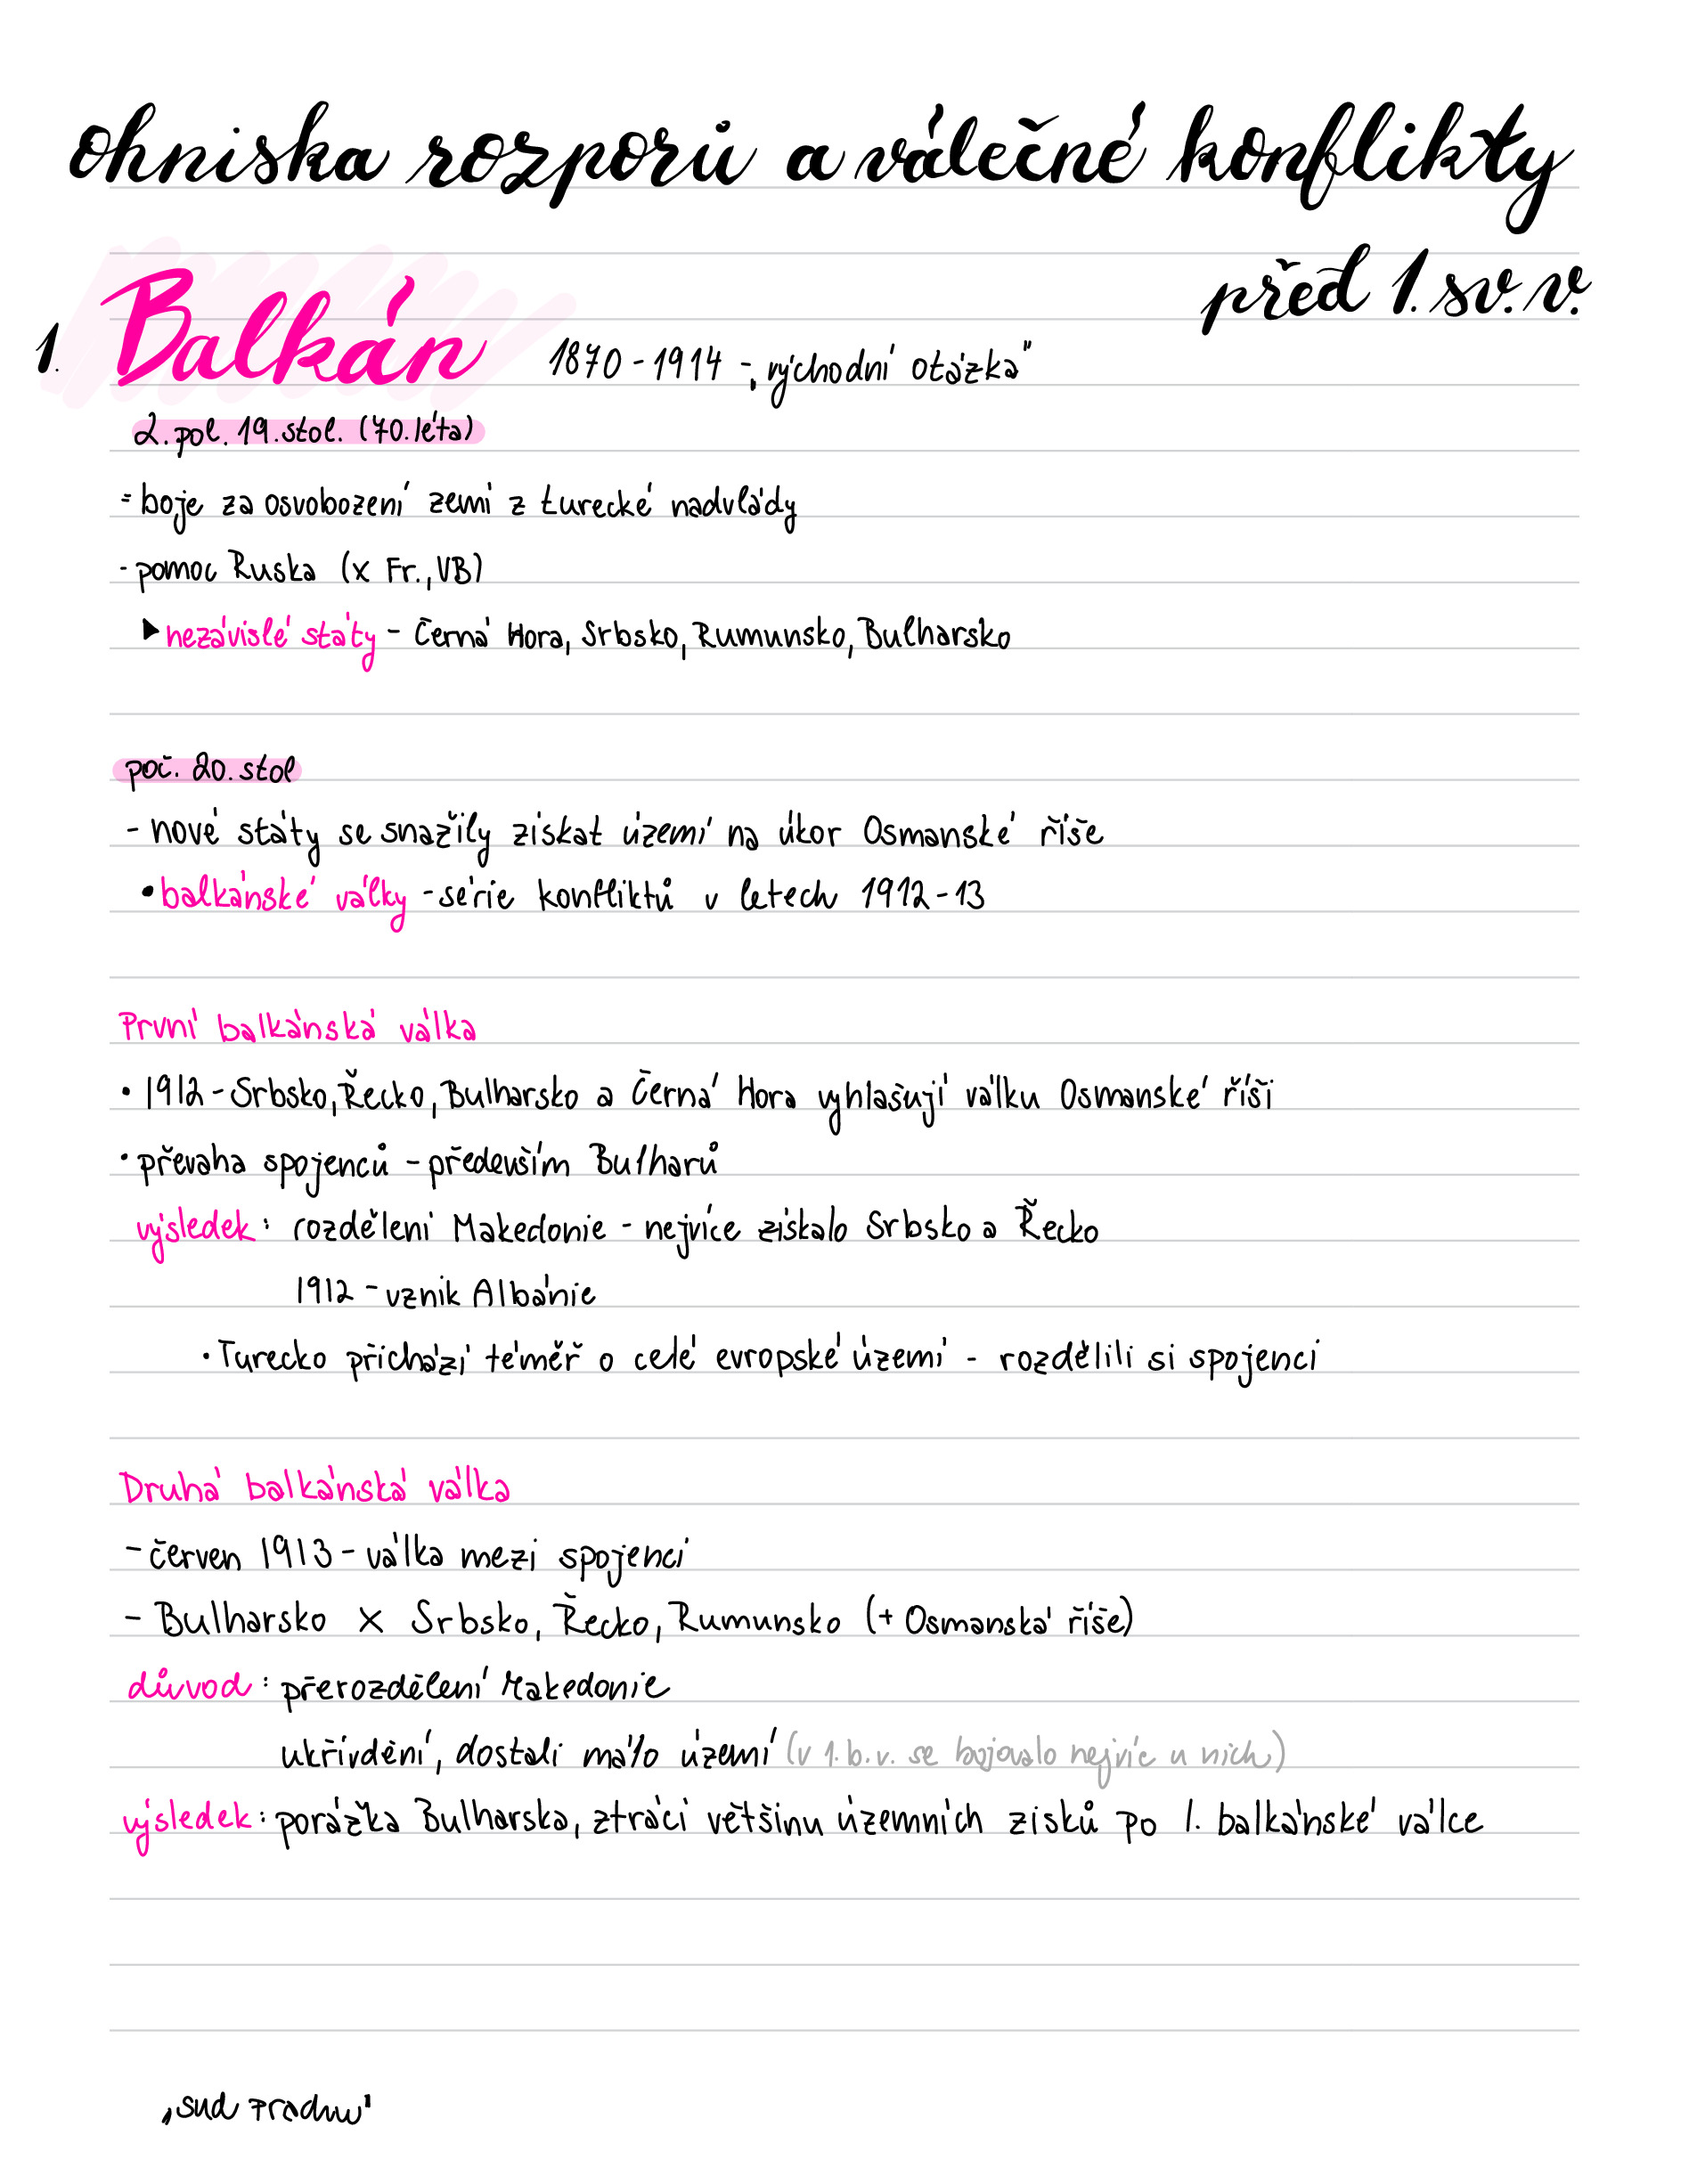 ohniska rozporů a válečné konflikty
před 1. sv. v.
1. Balkán 1870 - 1914 - „východní otázka"
2. pol. 19. stol. (70. léta)
= boje za osvobození zemí z turecké nadvlády
- pomoc Ruska (x Fr., VB)
▶ nezávislé státy - Černá Hora, Srbsko, Rumunsko, Bulharsko
poč. 20. stol
- nové státy se snažily získat území na úkor Osmanské říše
• balkánské války - série konfliktů v letech 1912 - 13
První balkánská válka
• 1912 - Srbsko, Řecko, Bulharsko a Černá Hora vyhlašují válku Osmanské říši
• převaha spojenců - především Bulharů
výsledek: rozdělení Makedonie - nejvíce získalo Srbsko a Řecko
1912 - vznik Albánie
• Turecko přichází téměř o celé evropské území - rozdělili si spojenci
Druhá balkánská válka
- červen 1913 - válka mezi spojenci
- Bulharsko x Srbsko, Řecko, Rumunsko (+ Osmanská říše)
důvod: přerozdělení Makedonie
ukřivdění, dostali málo území (v 1. b. v. se bojovalo nejvíc u nich)
výsledek: porážka Bulharska, ztrácí většinu územních zisků po 1. balkánské válce
„sud prachu"